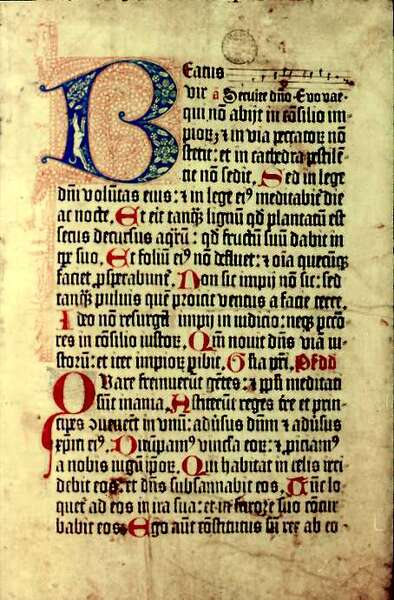 Beatus
vir a Seruite dn̄o. Euouae.
qui nō abijt in cōsilio im-
pioꝝ, ⁊ in via peccatoꝝ nō
stetit: et in cathedra pestilē-
tie nō sedit, Sed in lege
dn̄i volūtas eius: ⁊ in lege eiꝰ meditabit̄ die
ac nocte, Et erit tanq̄ꝫ lignū qd̄ plantatū est
secus decursus aqꝝ: qd̄ fructū suū dabit in
tꝑe suo, Et foliū eiꝰ nō defluet: ⁊ oīa quecūqꝫ
faciet ꝓsperabunt̄, Non sic impij nō sic: sed
tanq̄ꝫ puluis quē proicit ventus a facie terre,
Ideo nō resurgūt impij in iudicio: neqꝫ pctōo-
res in cōsilio iustoꝝ, Qm̄ nouit dn̄s viā iu-
stoꝝ: et iter impioꝝ peribit, Gl̄ia pr̄i,
Qvare fremuerūt gētes: ⁊ pp̄li meditati
sūt inania, Astiterūt reges tr̄e et prin-
cipes ꝯuenerūt in vnū: aduersus dn̄m ⁊ adūsus
xp̄m eiꝰ, Dirūpamꝰ vincl̄a eoꝝ: ⁊ ꝓiciamꝰ
a nobis iugū ip̄oꝝ, Qui habitat in celis irri-
debit eos: et dn̄s subsannabit eos, Tūc lo-
quet̄ ad eos in ira sua: et in furore suo cōtur-
babit eos, Ego aūt cōstitutus sū rex ab eo